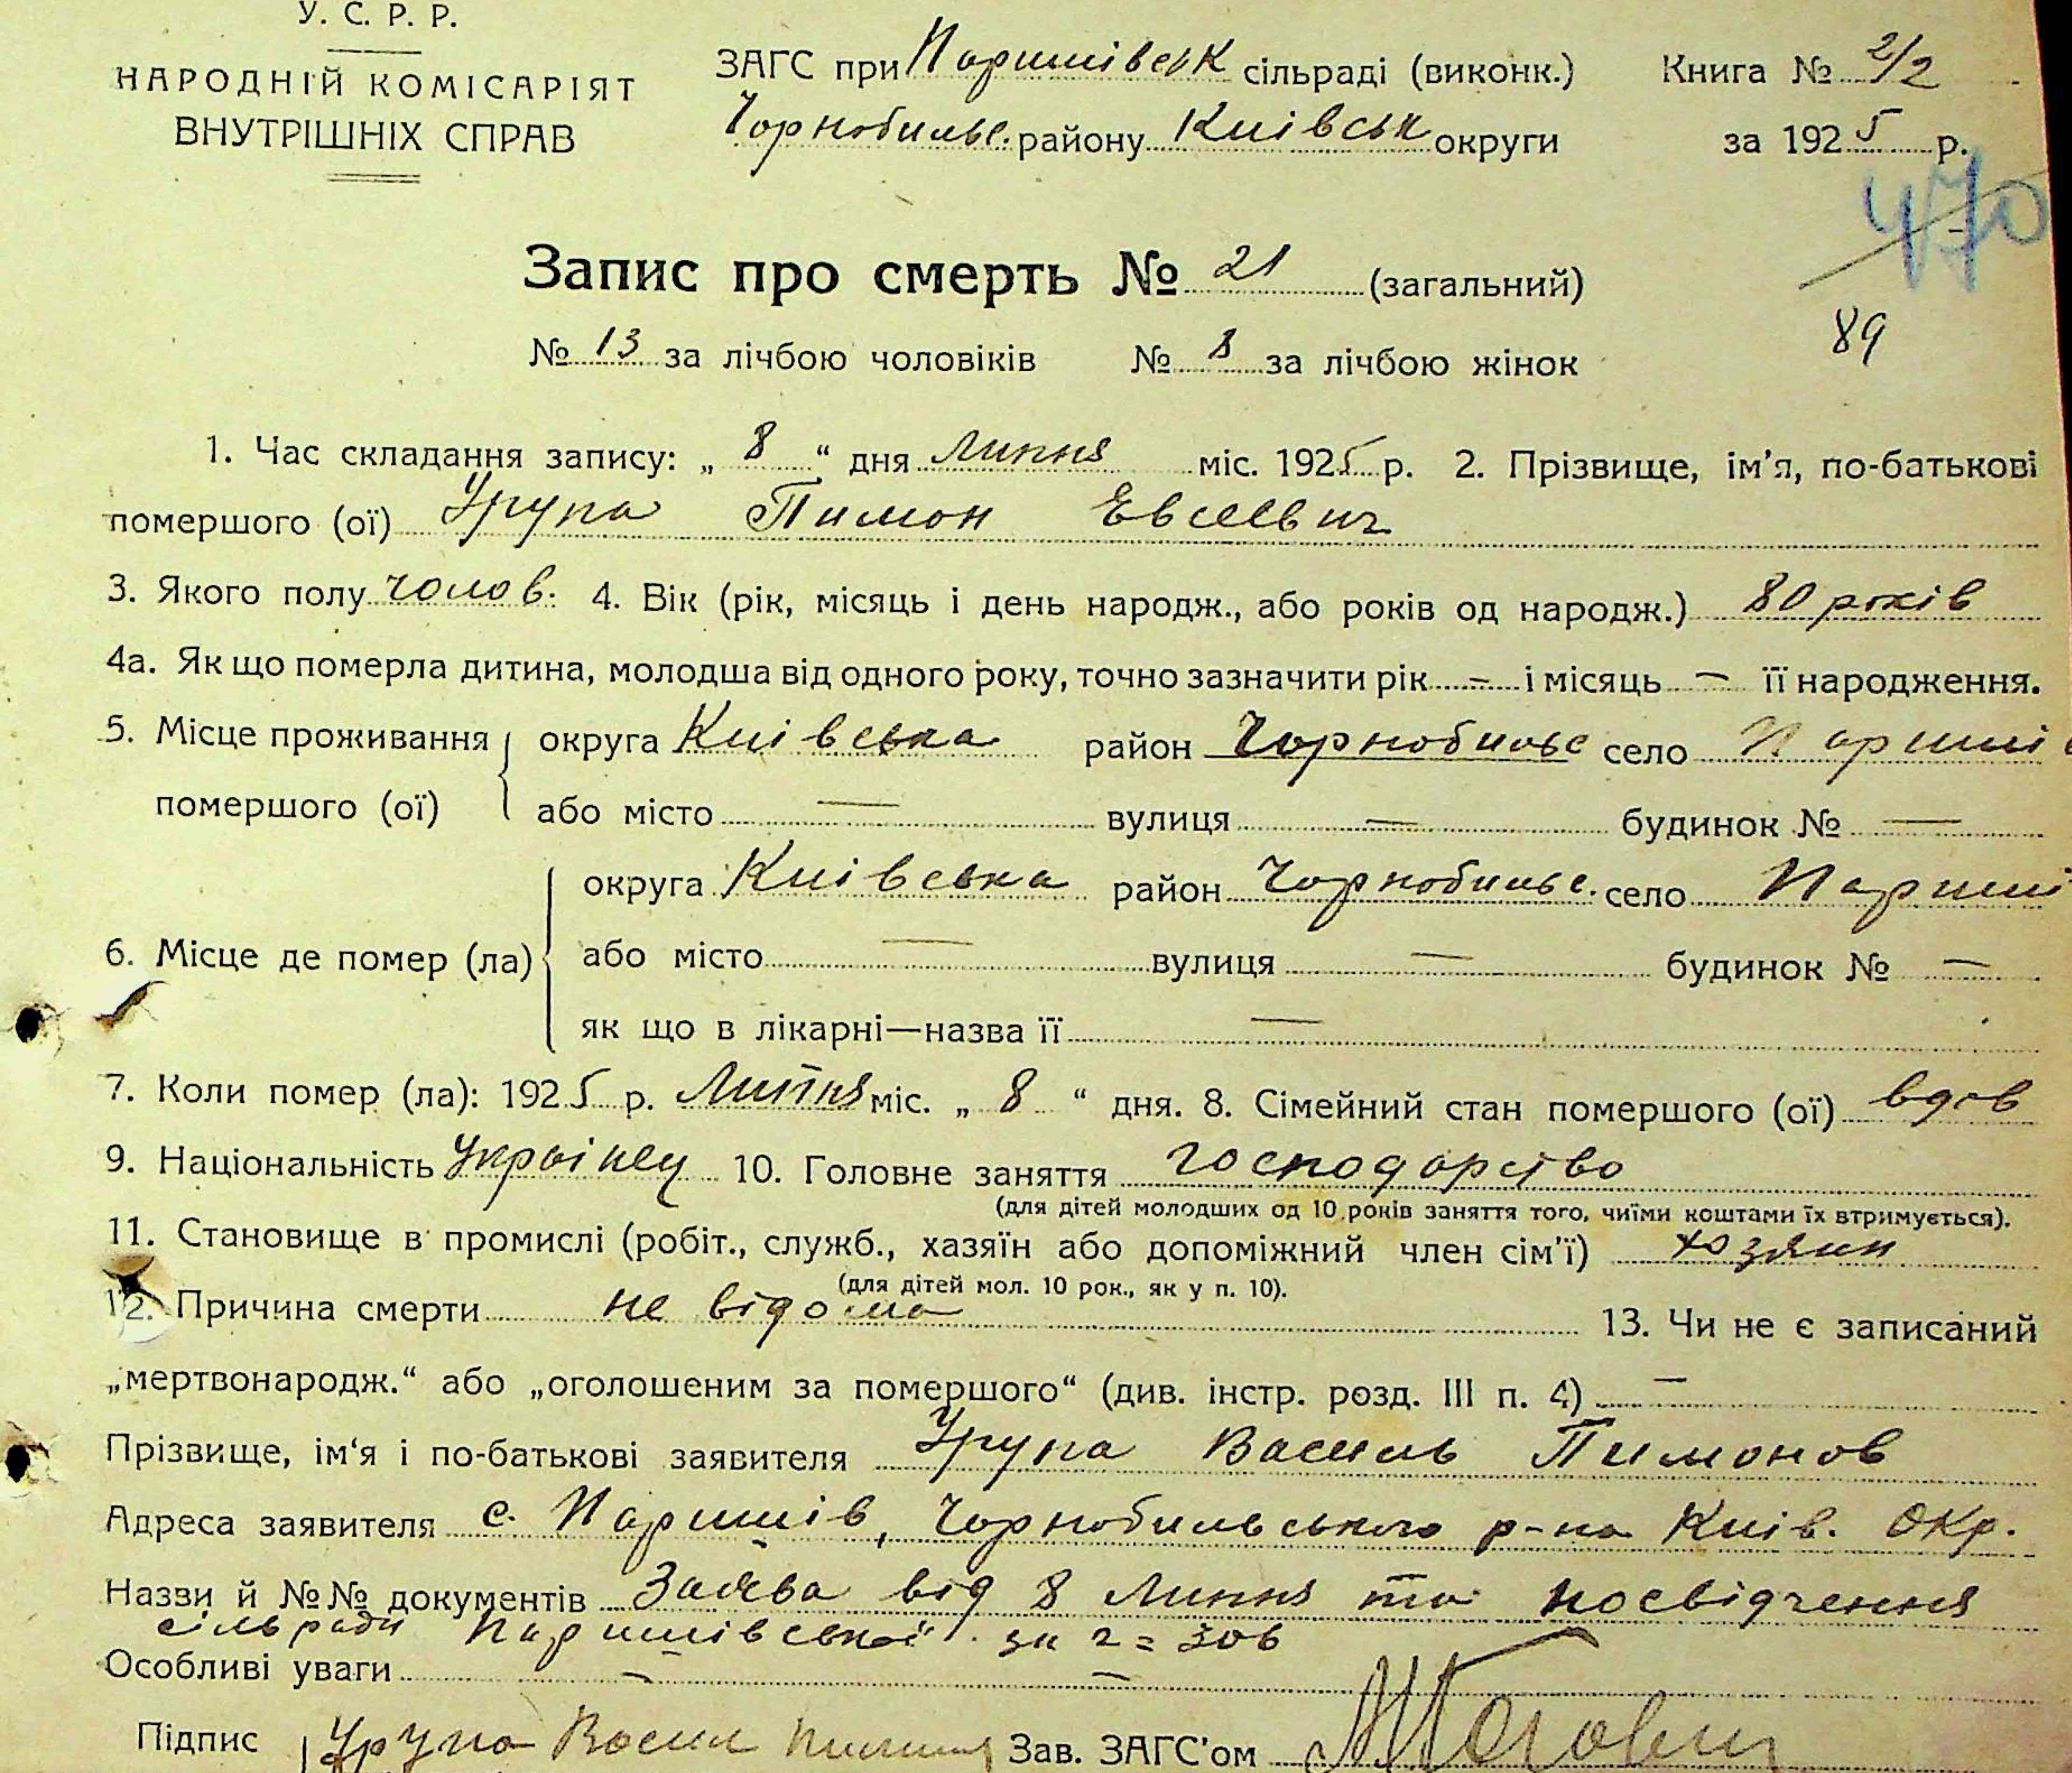 У. С. Р. Р.
НАРОДНІЙ КОМІСАРІЯТ
ВНУТРІШНІХ СПРАВ
ЗАГС при Паришівськ сільраді (виконк.)
Чорнобильс. району Київськ округи
Книга № 2/2
за 1925 р.
470
89
Запис про смерть № 21 (загальний)
№ 13 за лічбою чоловіків № 8 за лічбою жінок
1. Час складання запису: „ 8 “ дня Липня міс. 1925 р. 2. Прізвище, ім’я, по-батькові
помершого (ої) Урупа Пимон Евсеевич
3. Якого полу чолов. 4. Вік (рік, місяць і день народж., або років од народж.) 80 років
4а. Як що померла дитина, молодша від одного року, точно зазначити рік — і місяць — її народження.
5. Місце проживання округа Київська район Чорнобильс село Париші
помершого (ої) або місто — вулиця — будинок № —
округа Київська район Чорнобильс. село Париші
6. Місце де помер (ла) або місто — вулиця — будинок № —
як що в лікарні—назва її —
7. Коли помер (ла): 1925 р. Липня міс. „ 8 “ дня. 8. Сімейний стан помершого (ої) вдов
9. Національність Українец 10. Головне заняття господарство
(для дітей молодших од 10 років заняття того, чиїми коштами їх втримується).
11. Становище в промислі (робіт., служб., хазяїн або допоміжний член сім’ї) хозяин
(для дітей мол. 10 рок., як у п. 10).
12. Причина смерти не відома 13. Чи не є записаний
„мертвонародж.“ або „оголошеним за помершого“ (див. інстр. розд. III п. 4) —
Прізвище, ім‘я і по-батькові заявителя Урупа Василь Пимонов
Адреса заявителя с. Паришів, Чорнобильського р-на Київ. Окр.
Назви й №№ документів Заява від 8 Липня та посвідчення
сільради Паришівської за 306
Особливі уваги — —
Підпис Урупа Васил Зав. ЗАГС’ом